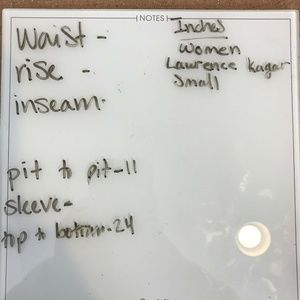 NOTES
Waist -
rise -
inseam-
pit to pit-11
sleeve-
top to bottom-24
Inches
Women
Lawrence Kazar
Small